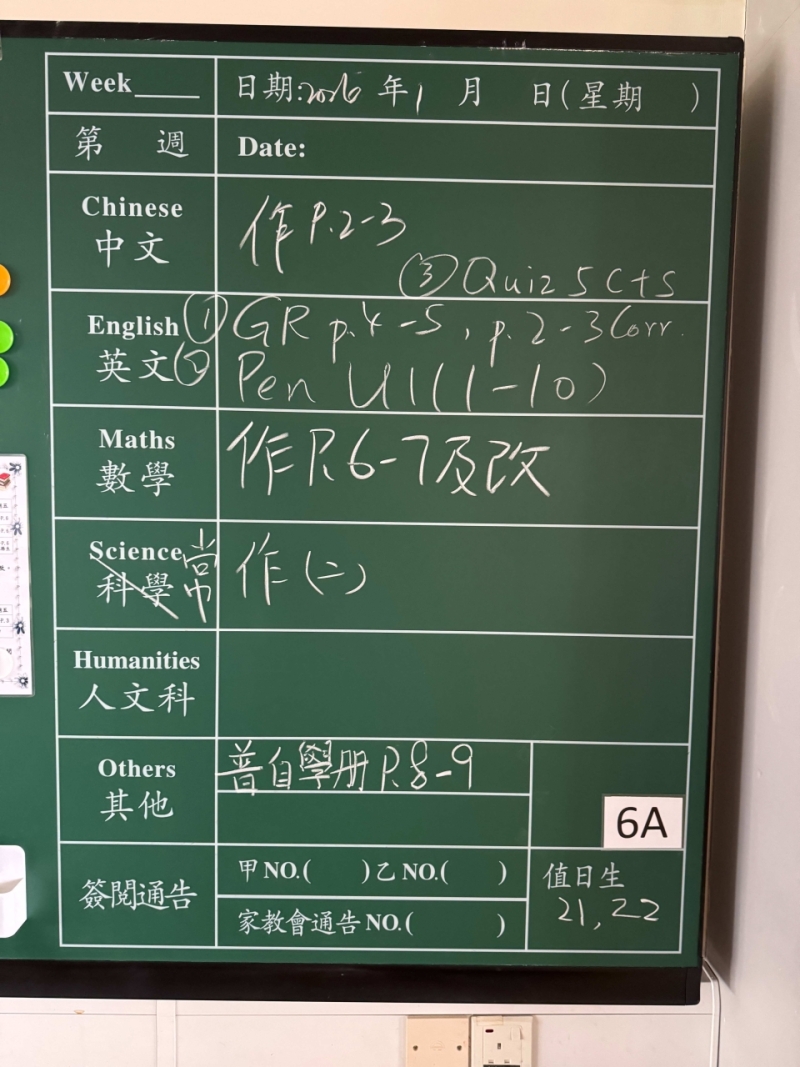 Week____ 日期:2026 年1 月 日(星期 )
第 週 Date:
Chinese
中文
作P.2-3
English
英文
③ Quiz 5 C+S
① GR p.4-5, p.2-3 Corr.
② Pen U1(1-10)
Maths
數學
作P.6-7及改
Science
科學
常
作(二)
Humanities
人文科
Others
其他
普自學册P.8-9
6A
簽閱通告
甲NO.( )乙NO.( )
家教會通告NO.( )
值日生
21,22